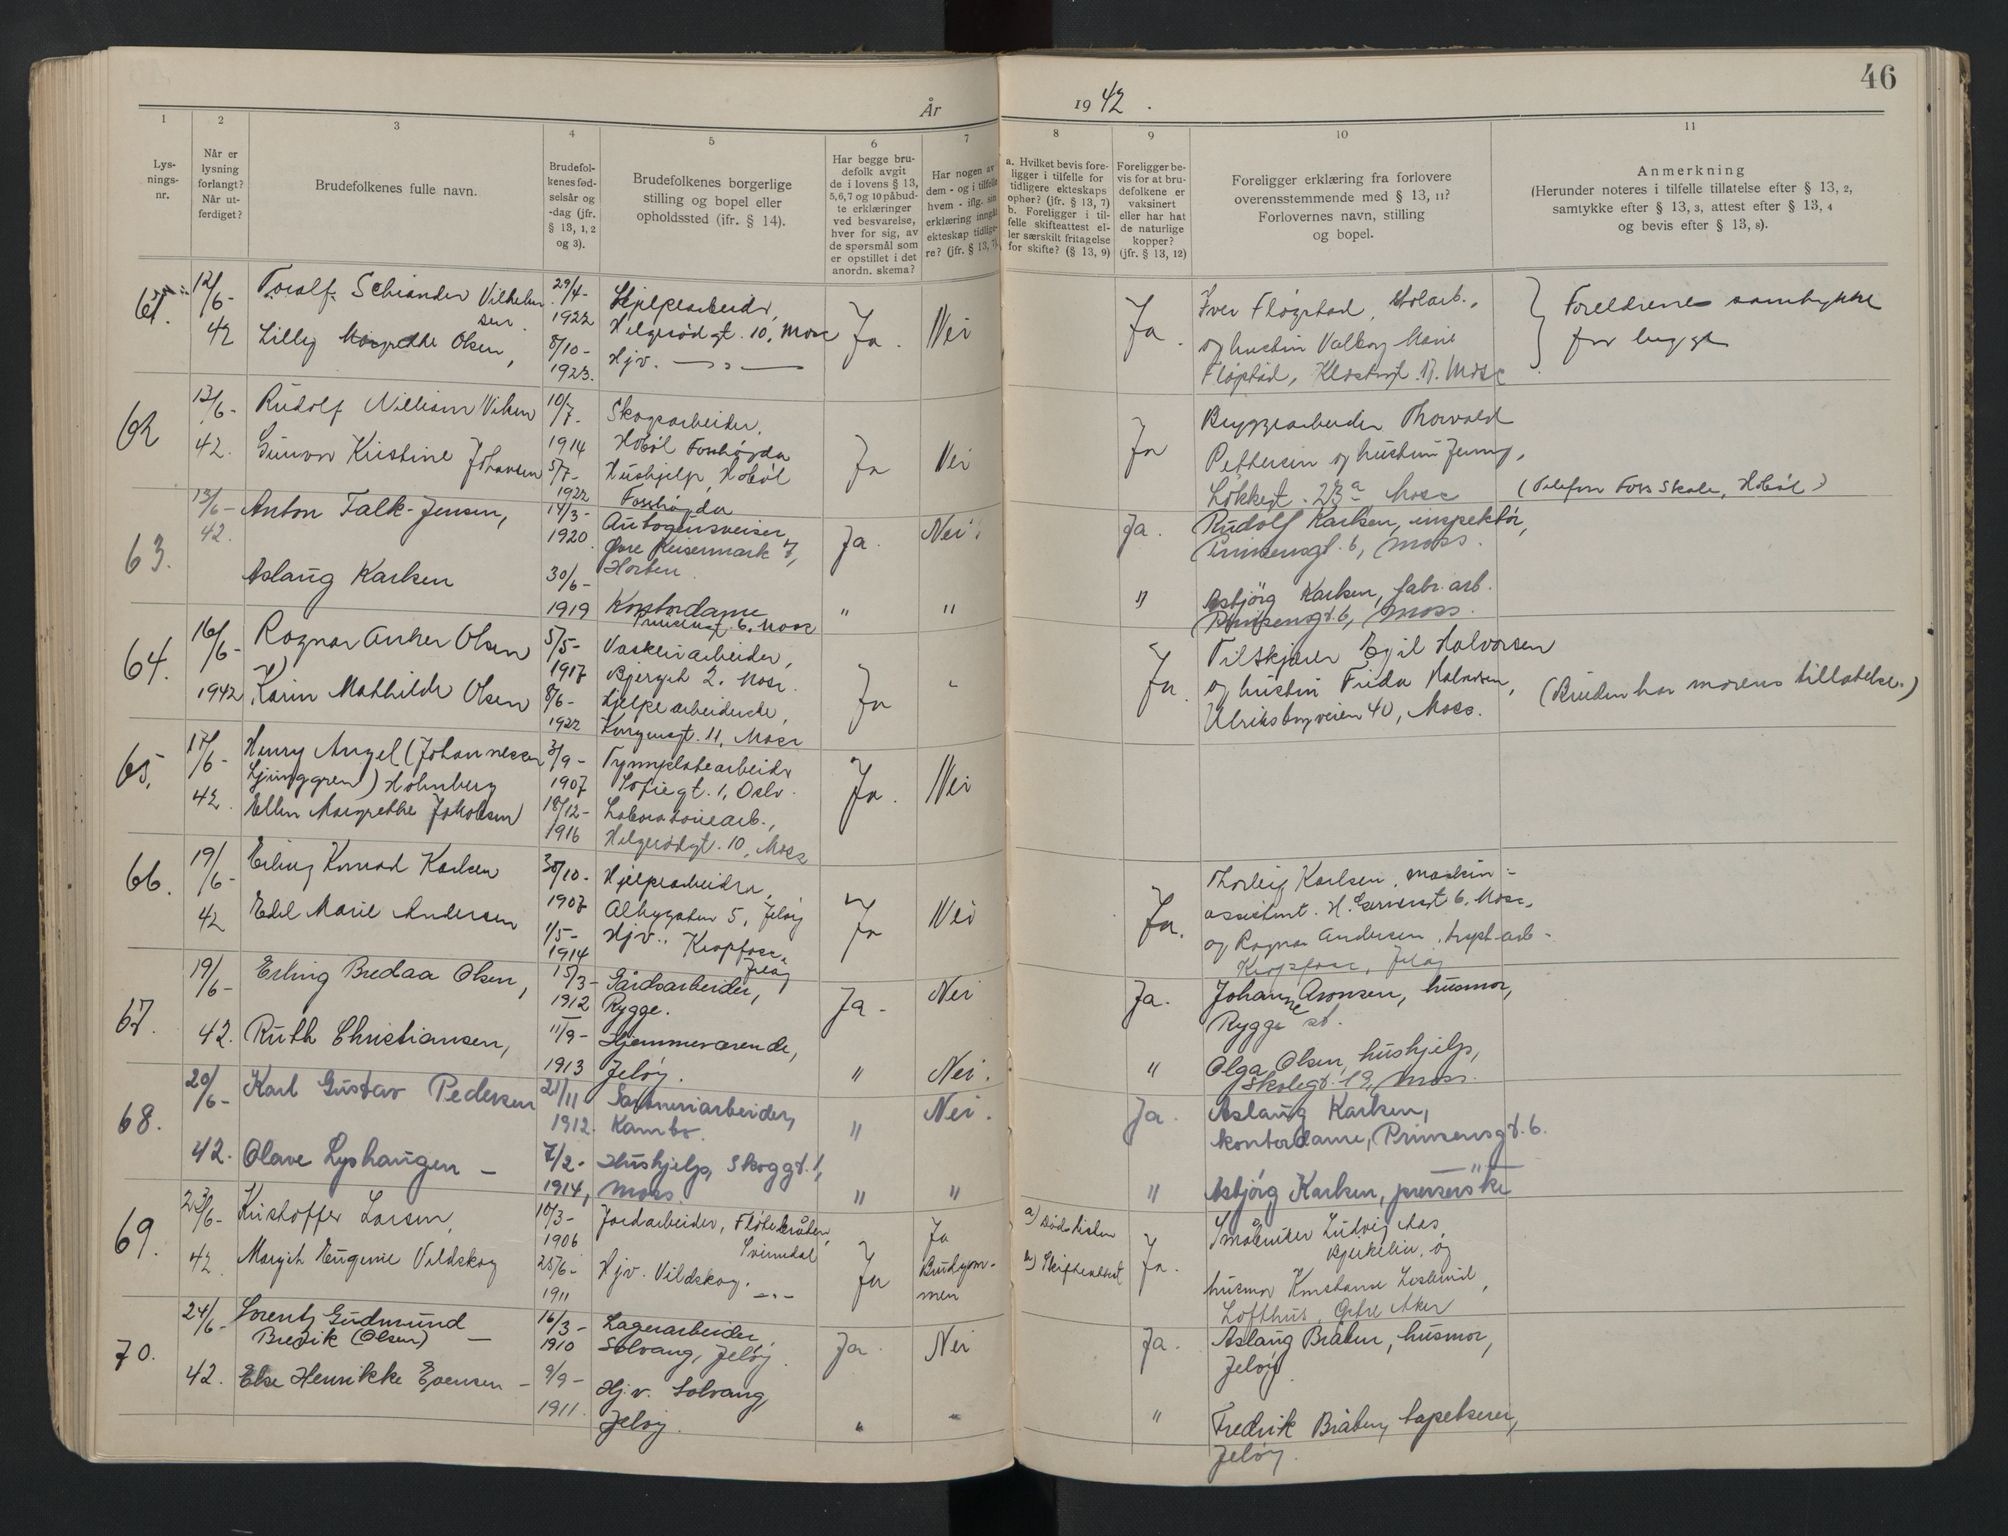 År 1942.
46
1 2 3 4 5 6 7 8 9 10 11
Lysningsnr.
Når er lysning forlangt? Når utferdiget?
Brudefolkenes fulle navn.
Brudefolkenes fødselsår og -dag (jfr. § 13, 1, 2 og 3).
Brudefolkenes borgerlige stilling og bopel eller opholdssted (ifr. § 14).
Har begge brudefolk avgit de i lovens § 13, 5,6,7 og 10 påbudte erklæringer ved besvarelse, hver for sig, av de spørsmål som er opstillet i det anordn. skema?
Har nogen av dem - og i tilfelle hvem - iflg. sin erklæring inngått ekteskap tidligere? (jfr. § 13, 7).
a. Hvilket bevis foreligger i tilfelle for tidligere ekteskaps ophør? (jfr. § 13, 7)
b. Foreligger i tilfelle skifteattest eller særskilt fritagelse for skifte? (§ 13, 9)
Foreligger bevis for at brudefolkene er vaksinert eller har hat de naturlige kopper? (jfr. § 13, 12)
Foreligger erklæring fra forlovere overensstemmende med § 13, 11? Forlovernes navn, stilling og bopel.
Anmerkning
(Herunder noteres i tilfelle tillatelse efter § 13, 2, samtykke efter § 13, 3, attest efter § 13, 4 og bevis efter § 13, 8).
61. 12/6- 42
Toralf Schiander Vilhelmsen.
29/4- 1922
Hjelpearbeider, Helgerødgt. 10, Moss
Ja. Nei
Lilly Margrethe Olsen,
8/10- 1923.
Hjv. — " —
Ja.
Iver Fløgstad,
og hustru Valborg Marie
Fløgstad, Klostergt. Moss
Foreldrenes samtykke
for begge
62 13/6- 42.
Rudolf William Viken
10/7- 1914
Skogsarbeider,
Hobøl Fosshøgda
Ja Nei
Gunvor Kristine Johansen
5/7- 1922
Hushjelp, Hobøl
Fosshøgda
Ja
Bryggearbeider Thorvald
Pettersen og hustru Jenny,
Løkkegt. 23a Moss
(Telefon Foss Skole, Hobøl)
63. 13/6- 42.
Anton Falk-Jensen,
14/3- 1920.
Autogensveiser
Øvre Keisermark 7,
Horten.
Ja. Nei.
Aslaug Karlsen
30/6- 1919
Kontordame
Prinsensgt. 6, Moss
" "
Ja.
Rudolf Karlsen, inspektør,
Prinsensgt. 6, Moss.
"
Asbjörg Karlsen, fabr. arb.
Prinsensgt. 6, Moss.
64. 16/6- 1942
Ragnar Anker Olsen
5/5- 1917
Vaskeriarbeider,
Bjergt 2. Moss.
Karin Mathilde Olsen
8/6- 1922
Hjelpearbeiderske,
Kongensgt. 11, Moss
Ja "
Ja.
Tilskjærer Egil Halvorsen
og hustru Frida Halvorsen,
Ulriksborgveien 40, Moss.
(Bruden har morens tillatelse.)
65. 17/6- 42.
Henry Angel (Johannessen
Ljunggren) Holmberg
3/9- 1907
Tynnplatearbeider
Sofiegt. 1, Oslo.
Ellen Margrethe Jakobsen
18/12- 1916
Laboratoriearb.,
Helgerødgt. 10, Moss
Ja. Nei
66. 19/6- 42
Erling Konrad Karlsen
30/10- 1907
Hjelpearbeider,
Albygaten 5, Jeløy
Edel Marie Andersen
1/5- 1914
Hjv., Kropfoss,
Jeløy
Ja Nei
Ja.
Thorleif Karlsen, maskin-
assistent. H. Gernersgt 6, Moss,
og Ragnar Andersen,
Kropfoss, Jeløy
67. 19/6- 42.
Erling Bredaa Olsen,
15/3- 1912
Gårdsarbeider,
Rygge.
Ja. Nei
Ruth Christiansen,
11/9- 1913
Hjemmeværende,
Jeløy.
" Nei.
Ja.
Johanne Aronsen, husmor,
Rygge st.
"
Olga Olsen, hushjelp,
Skolegt. 19, Moss.
68. 20/6- 42.
Karl Gustav Pedersen
21/11 1912.
Gartneriarbeider,
Kambo.
" Nei.
Olave Lyshaugen -
7/2- 1914,
Hushjelp, Skoggt. 1,
Moss.
" "
Ja.
Aslaug Karlsen,
kontordame, Prinsensgt. 6.
"
Asbjörg Karlsen, presserske
69. 23/6- 42
Kristoffer Larsen,
10/3- 1906
Jordarbeider, Fløtebråten,
Svinndal
Margit Eugenie Vildskog
25/6- 1911
Hjv. Vildskog. — " —
Ja
Ja
Brudgommen
a) Dødsattest
b) Skifteattest
Ja.
Småbruker Ludvig Aas,
Bjerkelia, og
husmor Konstanse
Lofthus, Østre Aker
70. 24/6- 42.
Lorentz Gudmund
Bredik (Olsen) -
16/3- 1910
Lagerarbeider,
Solvang, Jeløy.
Ja Nei
Else Henrikke Evensen -
9/9- 1911.
Hj.v. Solvang
Jeløy.
" "
Ja.
Aslaug Bråten, husmor,
Jeløy.
"
Fredrik Bråten, tapetserer,
Jeløy.